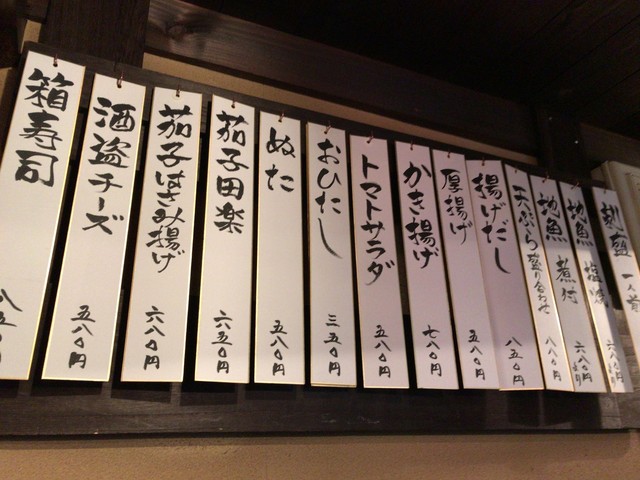 刺盛 一人前
地魚 塩焼
地魚 煮付
天ぷら盛り合わせ 八八〇円
揚げだし 八五〇円
厚揚げ 五八〇円
かき揚げ 七八〇円
トマトサラダ 五八〇円
おひたし 三五〇円
ぬた 五八〇円
茄子田楽 六五〇円
茄子はさみ揚げ 六八〇円
酒盗チーズ 五八〇円
箱寿司